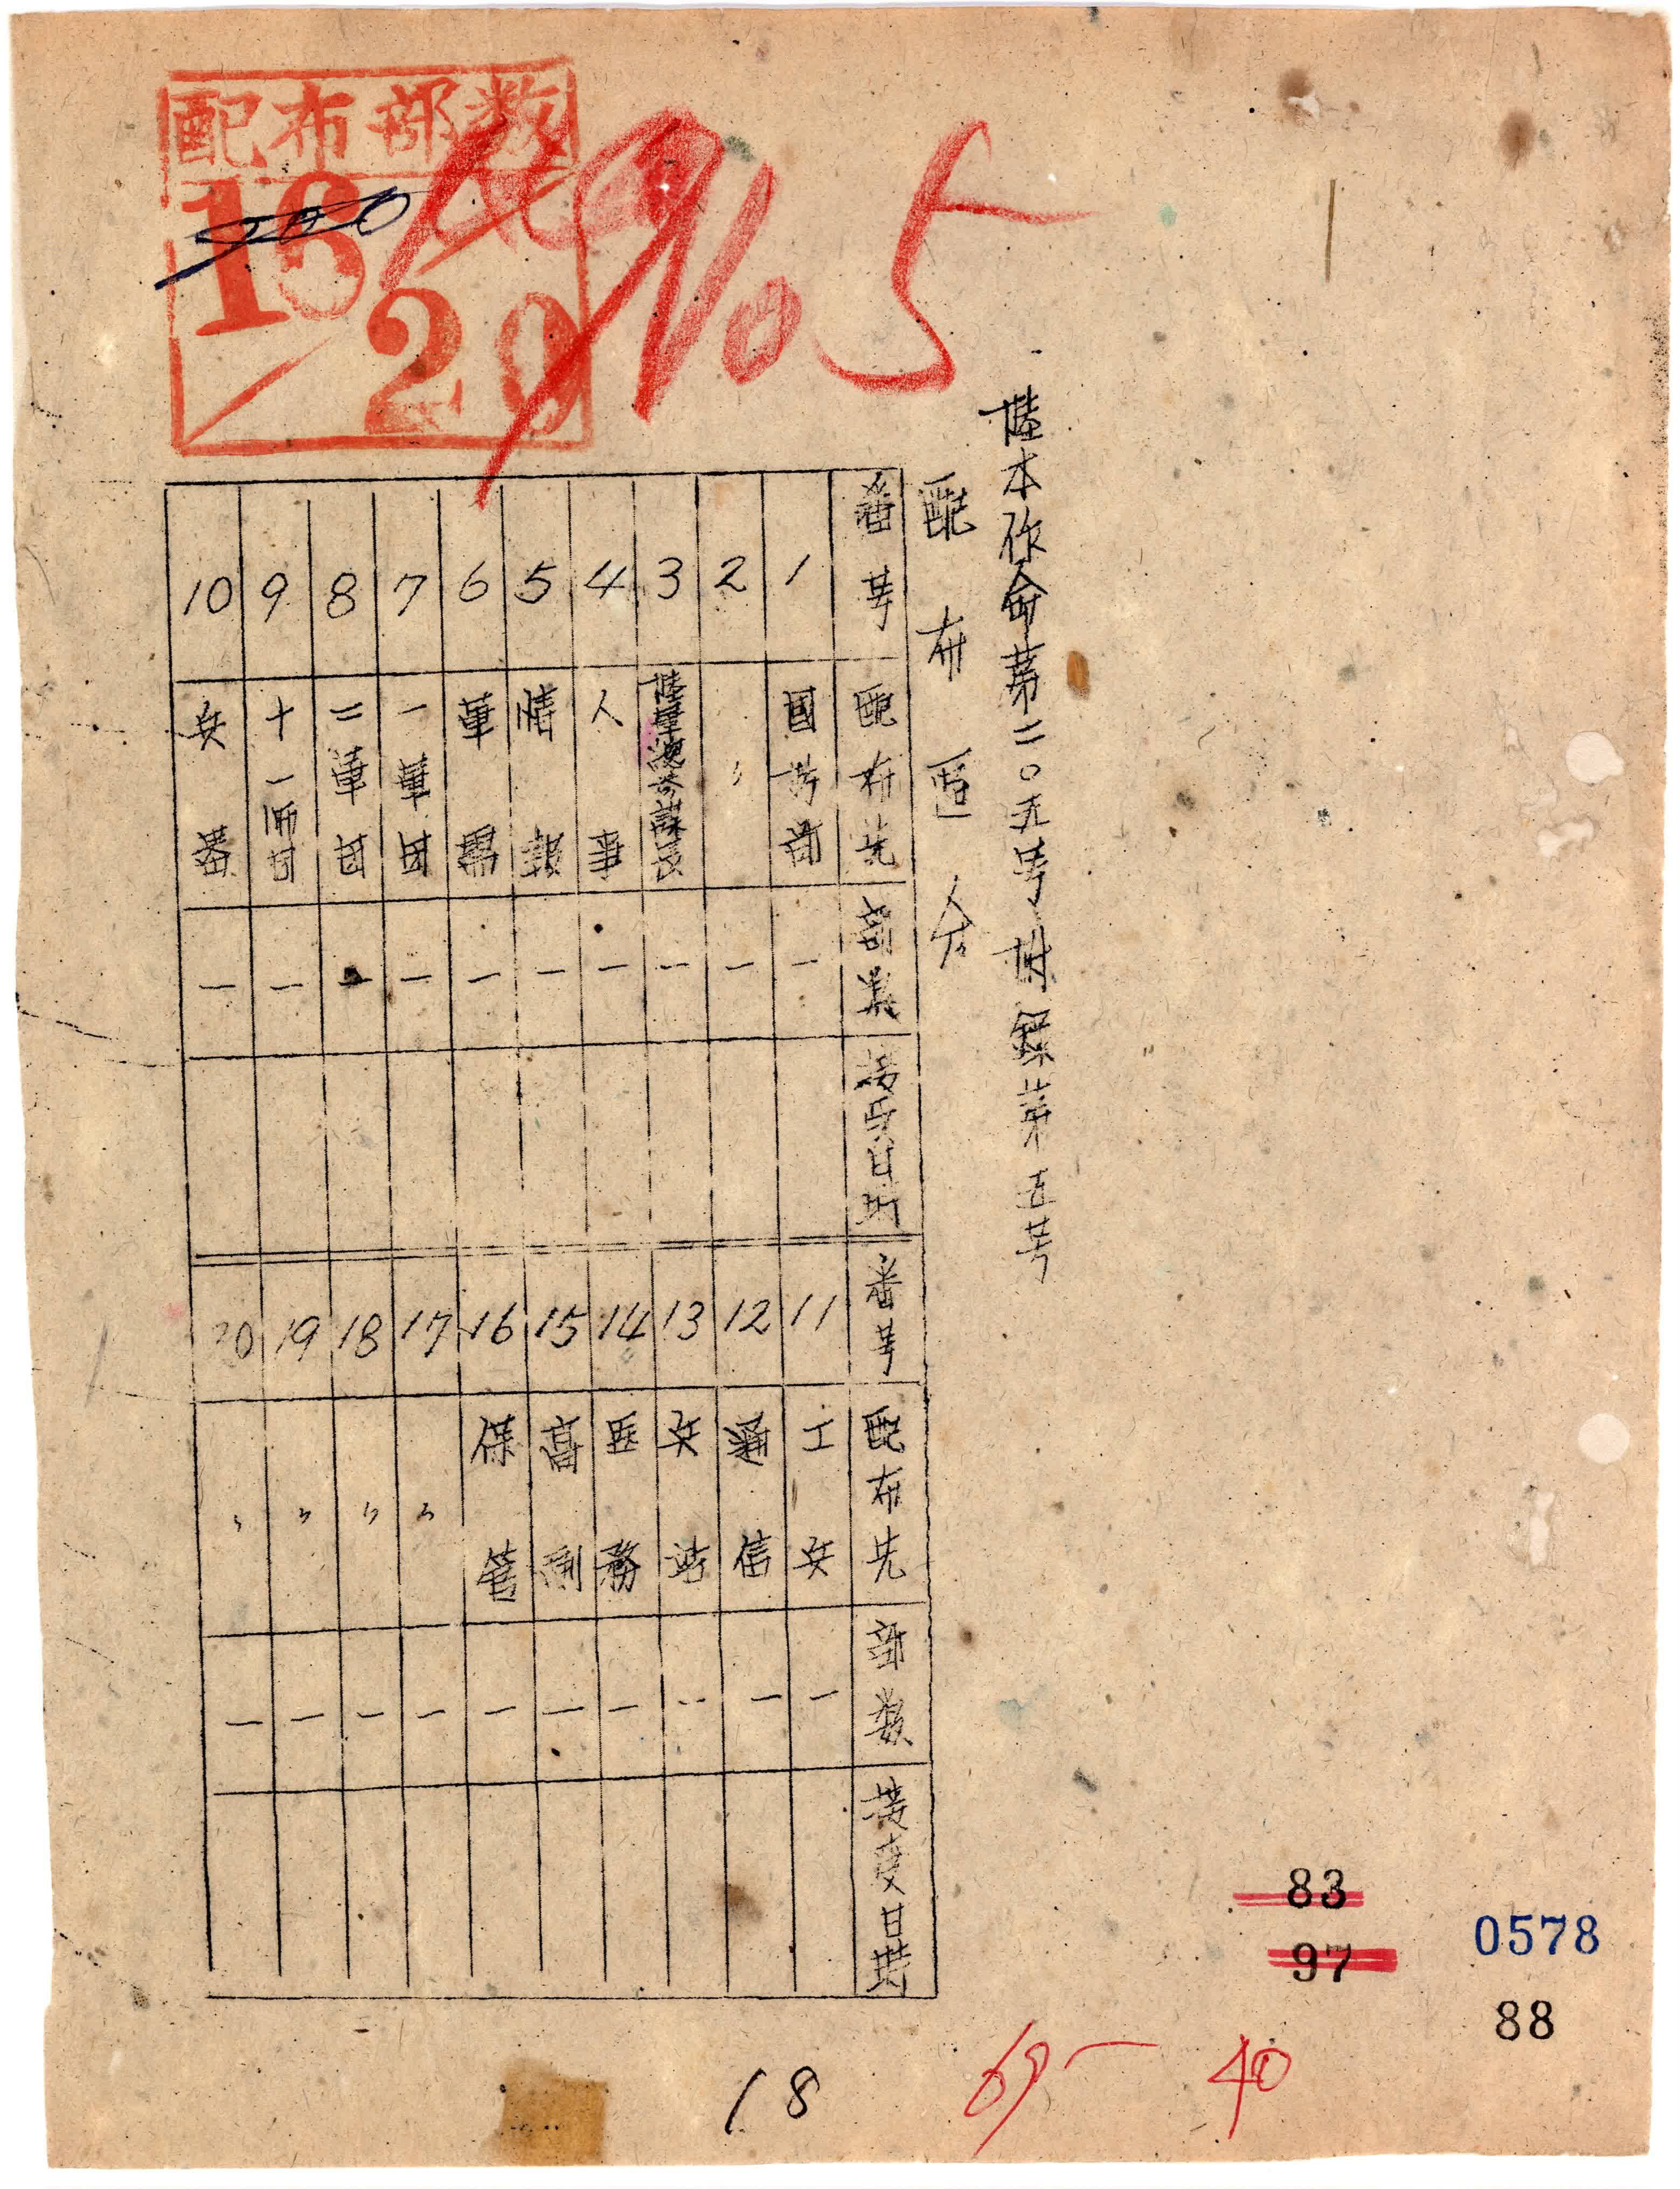 配布部数
16
20
No 5
陸本作命第二〇五号附録第五号
配布区分
番号 配布先 部数 接受日時
1 国防部 一
2 〃 一
3 陸軍總参謀長 一
4 人事 一
5 情報 一
6 軍需 一
7 一軍団 一
8 二軍団 一
9 十一師団 一
10 兵器 一
番号 配布先 部数 接受日時
11 工兵 一
12 通信 一
13 兵站 一
14 医務 一
15 高副 一
16 保管 一
17 〃 一
18 〃 一
19 〃 一
20 〃 一
83
97
0578
88
18
69-40